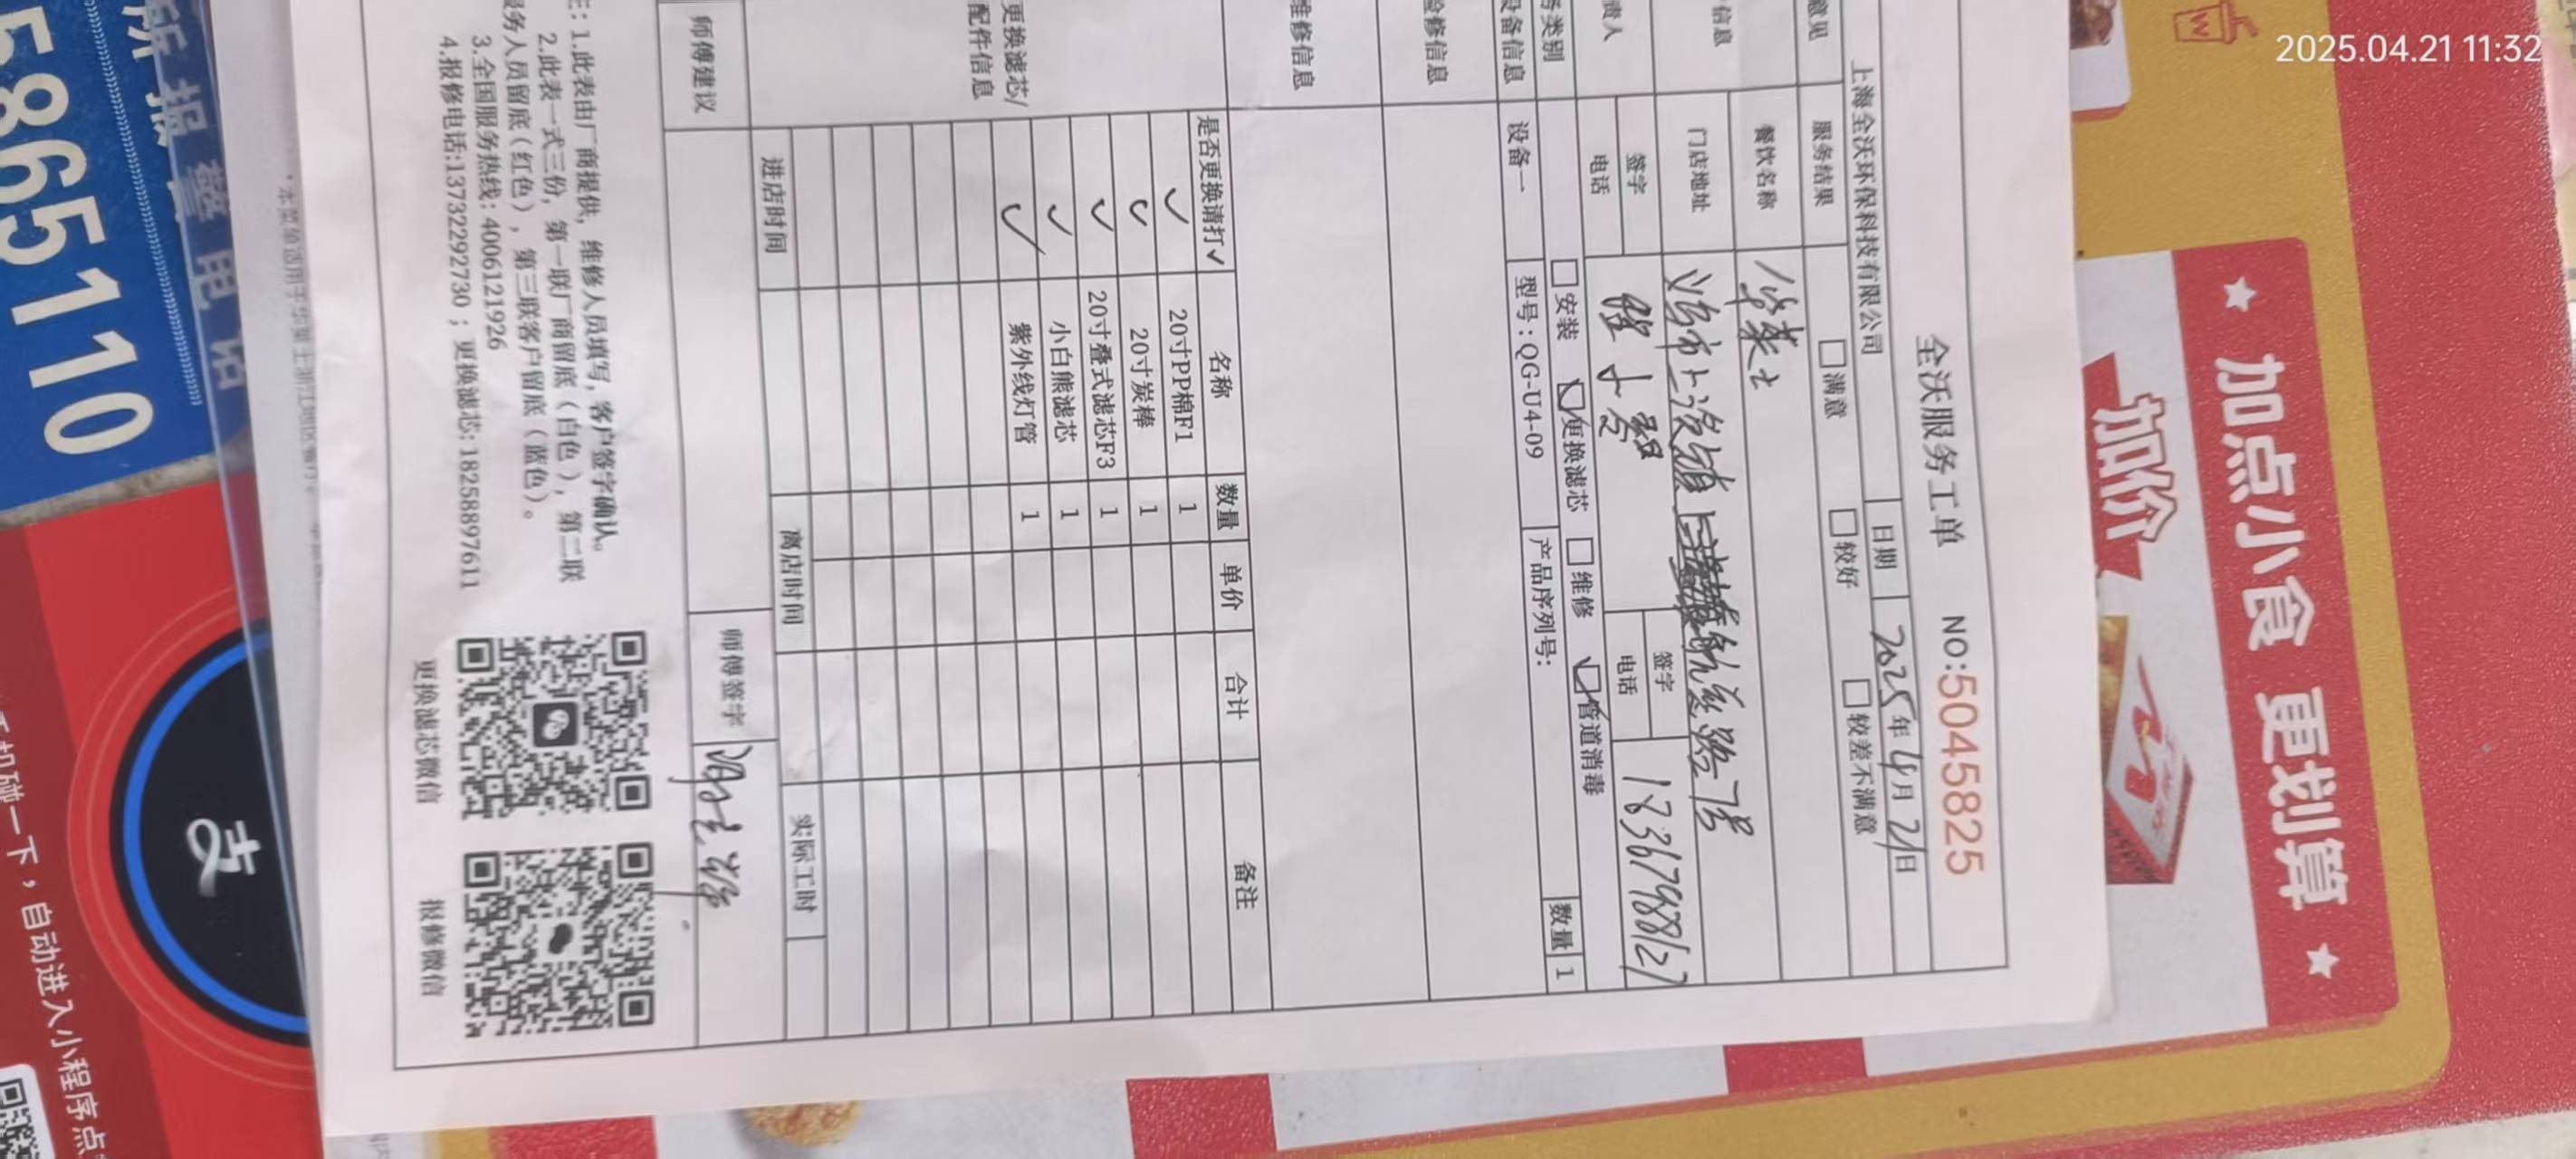 2025.04.21 11:32
加点小食 更划算
加价
全沃服务工单 NO:5045825
上海全沃环保科技有限公司 日期 2025年4月21日
意见 服务结果 满意 较好 较差不满意
信息 餐饮名称 华莱士
门店地址 义乌市上溪镇
责人 签字 签字
电话 电话 18367988127
务类别 安装 更换滤芯 维修 管道消毒
设备信息 设备一 型号:QG-U4-09 产品序列号: 数量 1
检修信息
维修信息
更换滤芯/
配件信息
是否更换请打✓ 名称 数量 单价 合计 备注
✓ 20寸PP棉F1 1
✓ 20寸炭棒 1
✓ 20寸叠式滤芯F3 1
✓ 小白熊滤芯 1
✓ 紫外线灯管 1
进店时间 离店时间 实际工时
师傅建议 师傅签字
1.此表由厂商提供, 维修人员填写, 客户签字确认。
2.此表一式三份, 第一联厂商留底(白色), 第二联
服务人员留底(红色), 第三联客户留底(蓝色)。
3.全国服务热线: 4006121926
4.报修电话:13732292730 ; 更换滤芯: 18258897611
更换滤芯微信 报修微信
所 报警电话
5865110
支
手机碰一下,自动进入小程序点